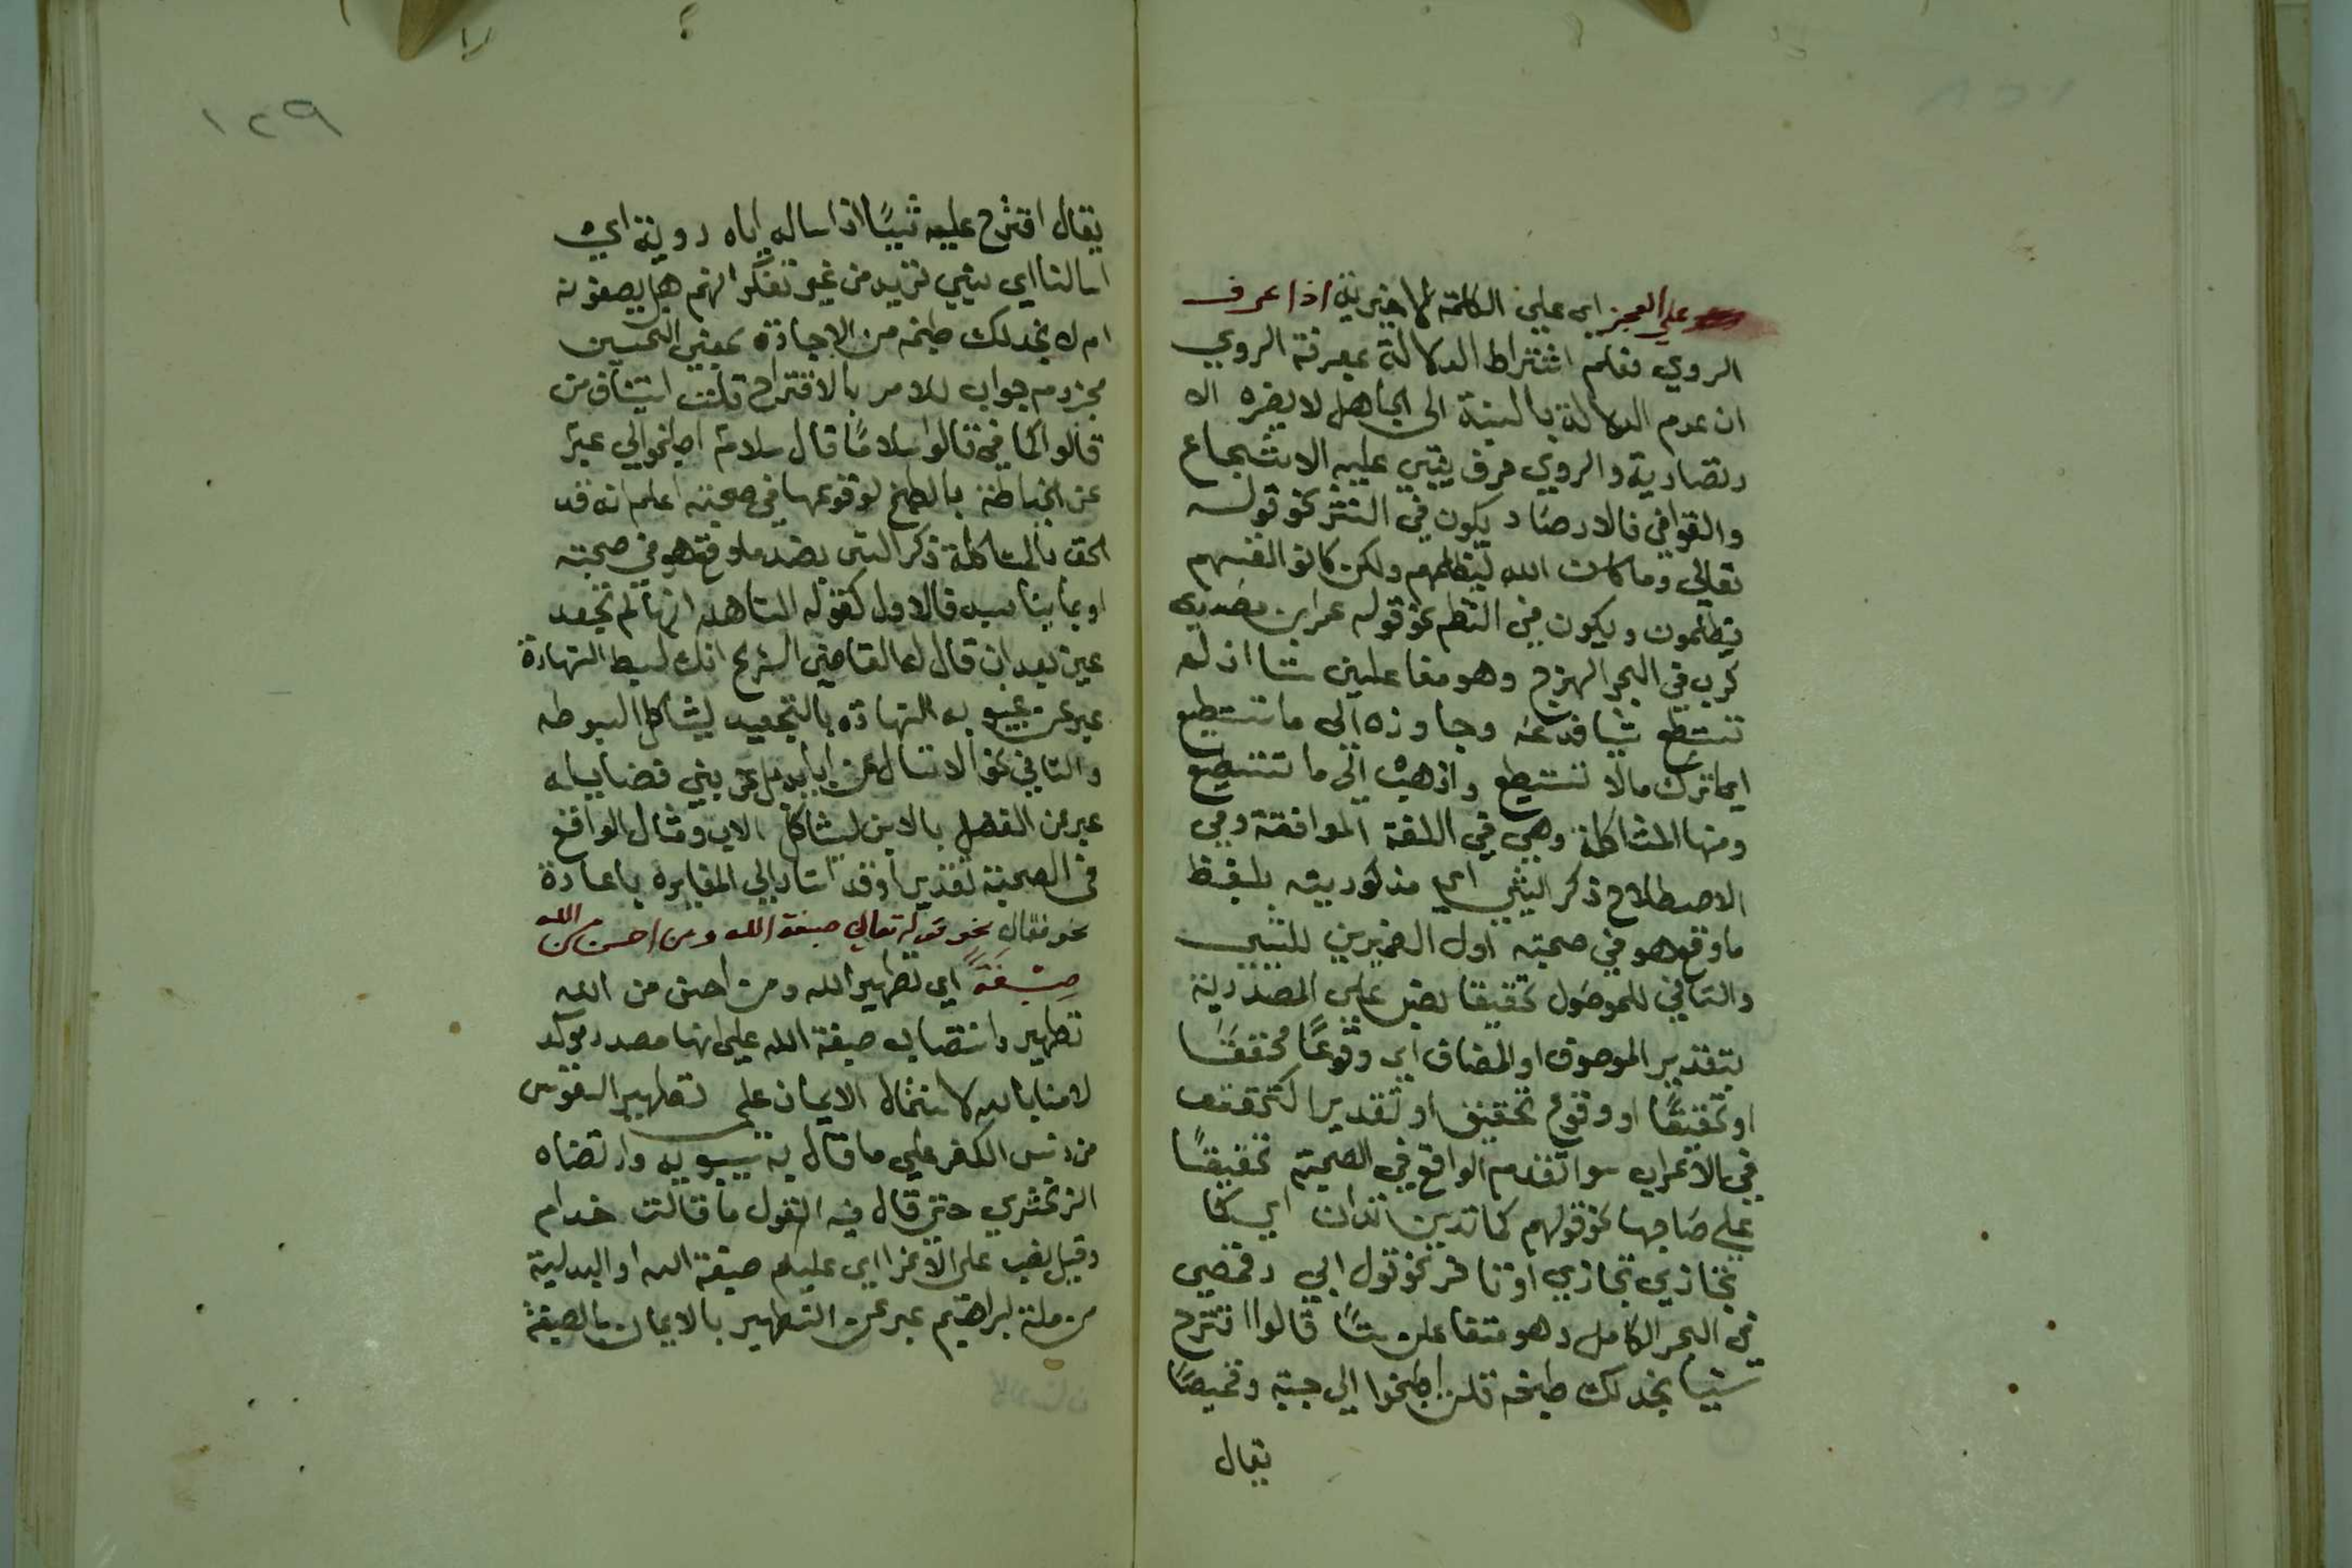 على العجز اي على الكلمة الاخيرية اذا عرف
الروي فعلم اشتراط الدلالة بمعرفة الروي
ان عدم الدلالة بالنسبة الى الجاهل لا يضره الا
والروي حرف يبتني عليه الاشجاع
والقوافي فالارصاد يكون في النثر نحو قوله
تعالى وما كان الله ليظلمهم ولكن كانوا انفسهم
يظلمون ويكون في النظم نحو قوله عمر ابن معديي
كرب في البحر الهزج وهو مفاعلين شا اذ لم
تستطع شيا فدعه وجاوزه الى ما تستطيع
اي اترك ما لا تستطيع واذهب الى ما تستطيع
ومنها المشاكلة وهي في اللغة الموافقة وفي
الاصطلاح ذكر الشي اي مذكوريته بلفظ
ما وقع هو في صحبته اول الضميرين للشي
والثاني للموصول تحقيقا نصب على المصدرية
بتقدير الموصوف او المضاف اي وقوعًا محققًا
او تحقيقًا او وقوع تحقيق او تقديرا
في الاعراب سوا تقدم الواقع في الصحبة تحقيقًا
على صاحبها نحو قولهم كما تدين تدان اي كما
تجازي تجازي او تاخر نحو قول ابي رقمصي
في البحر الكامل وهو متفاعلن شا قالوا اقترح
شيا نجد لك طبخه قلت اطبخوا الي جبة وقميصًا
يقال
١٢٩
يقال اقترح عليه شيًا اذا ساله اياه روية اي
اسالنا اي شي تريد من غير تفكر انهم هل يصفونه
ام لا نجد لك طبخه من الاجادة بمعنى التحسين
مجزوم جواب للامر بالاقتراح قلت استيناف من
قالوا كما في قالوا سلامًا قال سلام اطبخوا لي عبر
عن الخياطة بالطبخ لوقوعها في صحبته اعلم انه قد
الحق بالمشاكلة ذكر الشي بضد ما وقع هو في صحبته
او بما يناسبه فالاول كقوله الشاهد انها لم تجعد
عني بعد ان قال له القاضي الشريح انك لسبط الشهادة
عبر عن عيوبه الشهادة بالتجعيد ليشاكل السبوطه
والثاني نحو لا تسال عن ابي بل عن بني فضايله
عبر عن الفضل بالابن ليشاكل الاب ومثال الواقع
في الصحبة تقديرا وقد اشار الى المغايرة باعادة
نحو فقال نحو قوله تعالى صبغة الله ومن احسن من الله
صبغةً اي تطهير الله ومن احسن من الله
تطهير وانتصاب صبغة الله على انها مصدر موكد
لامنا بالله لاشتمال الايمان على تطهير النفوس
من دنس الكفر على ما قال به سيبويه وارتضاه
الزمخشري حتى قال فيه القول ما قالت خدام
وقيل نصب على الاغرا اي عليكم صبغة الله او البدلية
من ملة ابراهيم عبر عن التطهير بالايمان بالصبغة